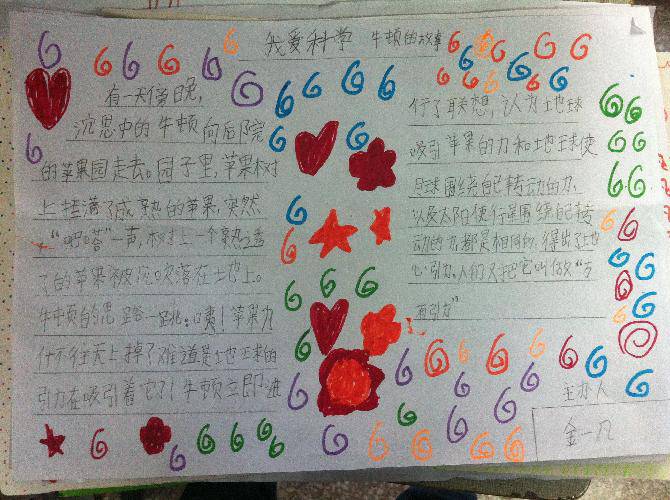 我爱科学 牛顿的故事
有一天傍晚,
沉思中的牛顿向后院
的苹果园走去。园子里,苹果树
上挂满了成熟的苹果,突然
“吧嗒”一声,树上一个熟透
了的苹果被风吹落在地上。
牛顿的思路一跳:咦!苹果为
什不往天上掉了难道是地球的
引力在吸引着它?!牛顿立即进
行了联想,认为地球
吸引苹果的力和地球使
月球围绕自己转动的力,
以及太阳使行星围绕自己转
动的力都是相同的,得出了地
心引力。人们又把它叫做“万
有引力”
主办人
金一凡